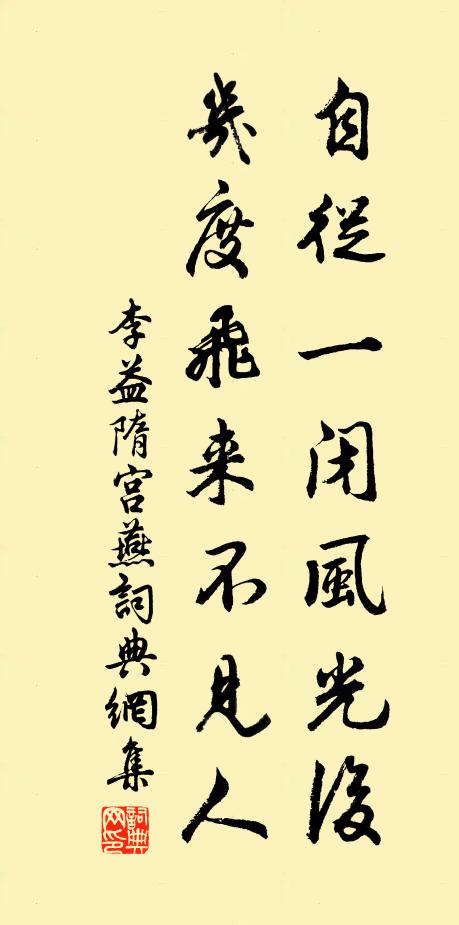 自從一闭風光後
幾度飛来不見人
李益隋宫燕詞典網集
詞典网印